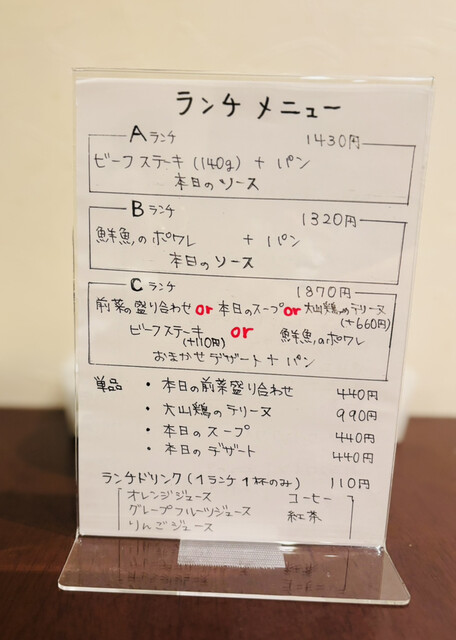 ランチ メニュー
Aランチ 1430円
ビーフステーキ(140g) + パン
本日のソース
Bランチ 1320円
鮮魚のポワレ + パン
本日のソース
Cランチ 1870円
前菜の盛り合わせ or 本日のスープ or 大山鶏のテリーヌ
(+660円)
ビーフステーキ or 鮮魚のポワレ
(+110円)
おまかせデザート + パン
単品 ・本日の前菜盛り合わせ 440円
・大山鶏のテリーヌ 990円
・本日のスープ 440円
・本日のデザート 440円
ランチドリンク(1ランチ1杯のみ) 110円
オレンジジュース コーヒー
グレープフルーツジュース 紅茶
りんごジュース